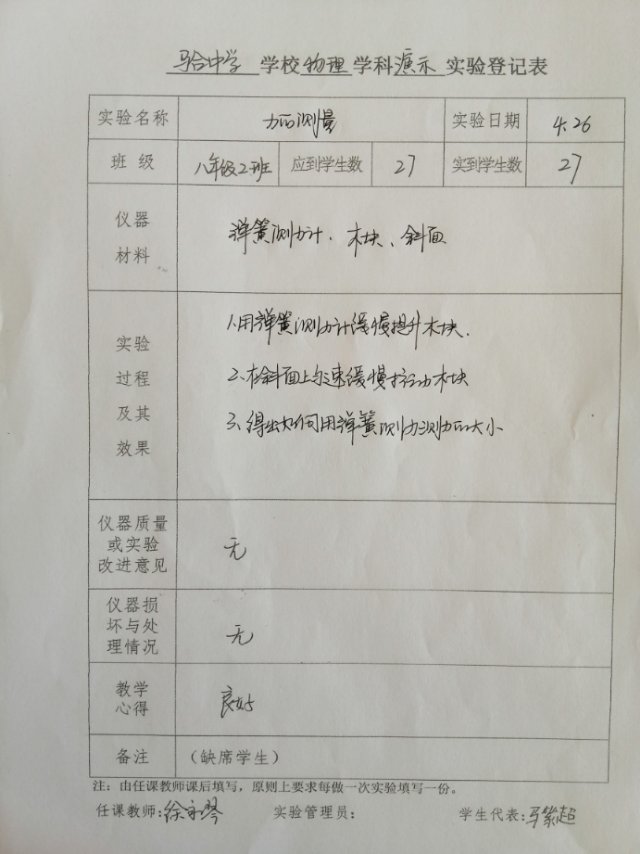 马合中学 学校 物理 学科 演示 实验登记表
实验名称 力的测量 实验日期 4.26
班 级 八年级2班 应到学生数 27 实到学生数 27
仪器
材料
弹簧测力计、木块、斜面
实验
过程
及其
效果
1.用弹簧测力计缓慢提升木块.
2.在斜面上匀速缓慢拉动木块
3.得出如何用弹簧测力测力的大小
仪器质量
或实验
改进意见
无
仪器损
坏与处
理情况
无
教学
心得
良好
备注 (缺席学生)
注：由任课教师课后填写，原则上要求每做一次实验填写一份。
任课教师：徐 实验管理员： 学生代表：马紫超